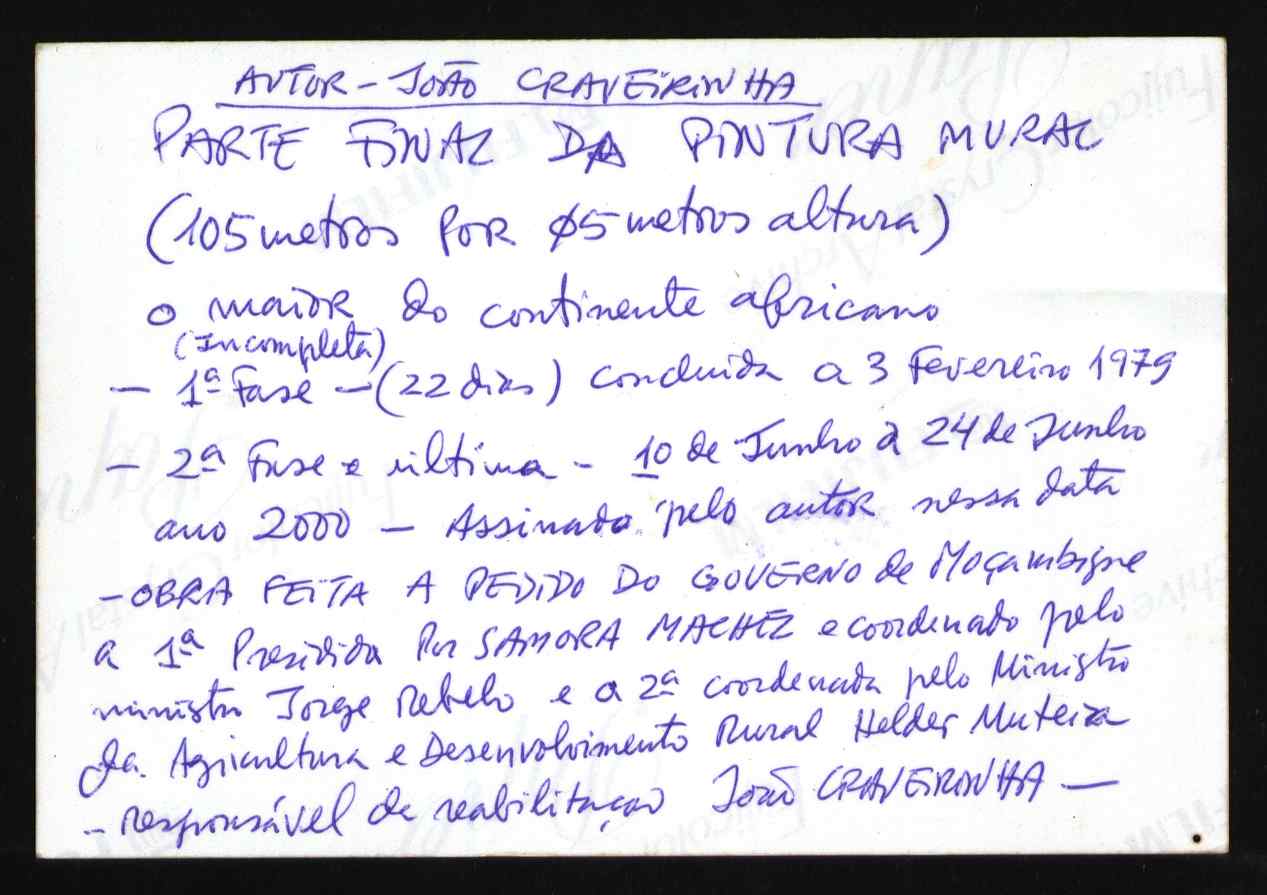 AUTOR - JOÃO CRAVEIRINHA
PARTE FINAL DA PINTURA MURAL
(105 metros por 05 metros altura)
o maior do continente africano
(Incompleta)
- 1ª Fase - (22 dias) concluida a 3 Fevereiro 1979
- 2ª Fase e última - 10 de Junho à 24 de Junho
ano 2000 - Assinada pelo autor nessa data
- OBRA FEITA A PEDIDO DO GOVERNO de Moçambique
a 1ª Presidida Por SAMORA MACHEL e coordenado pelo
ministro Jorge Rebelo e a 2ª coordenada pelo Ministro
da Agricultura e Desenvolvimento Rural Helder Muteia
- responsável da reabilitação João CRAVEIRINHA -